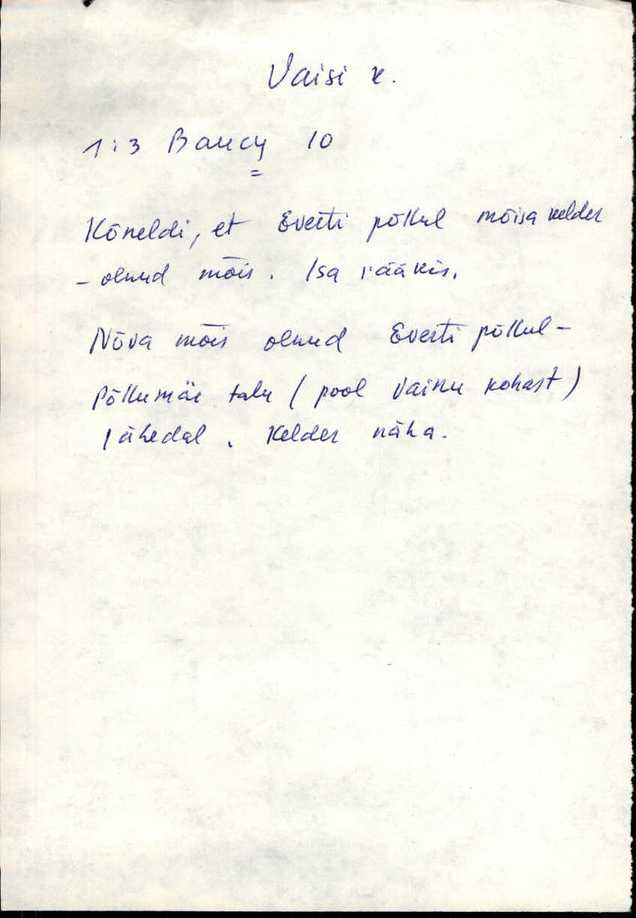 Vaisi k.
1:3 Baucy 10
Kõneldi, et Everti põkul mõisa kelder
- olnud mõis. Isa rääkis.
Nõva mõis olnud Everti põkul -
Põkumäe talu (pool Vainu kohast)
lähedal. Kelder näha.